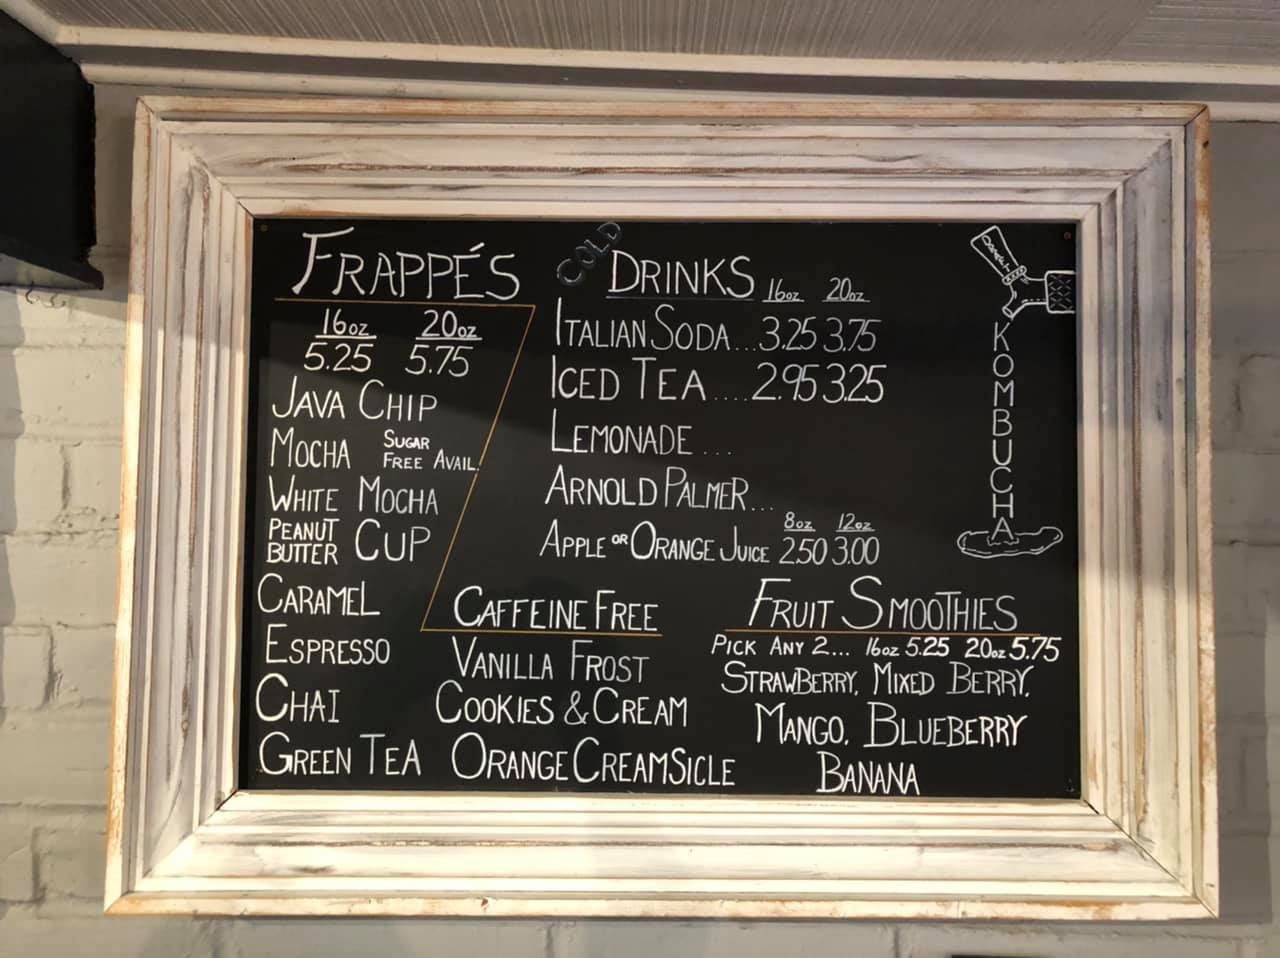 FRAPPÉS
16oz 20oz
5.25 5.75
JAVA CHIP
MOCHA SUGAR FREE AVAIL.
WHITE MOCHA
PEANUT BUTTER CUP
CARAMEL
ESPRESSO
CHAI
GREEN TEA
CAFFEINE FREE
VANILLA FROST
COOKIES & CREAM
ORANGE CREAMSICLE
COLD DRINKS 16oz 20oz
ITALIAN SODA... 3.25 3.75
ICED TEA.... 2.95 3.25
LEMONADE ...
ARNOLD PALMER...
8oz 12oz
APPLE OR ORANGE JUICE 2.50 3.00
FRUIT SMOOTHIES
PICK ANY 2... 16oz 5.25 20oz 5.75
STRAWBERRY, MIXED BERRY,
MANGO, BLUEBERRY
BANANA
KOMBUCHA